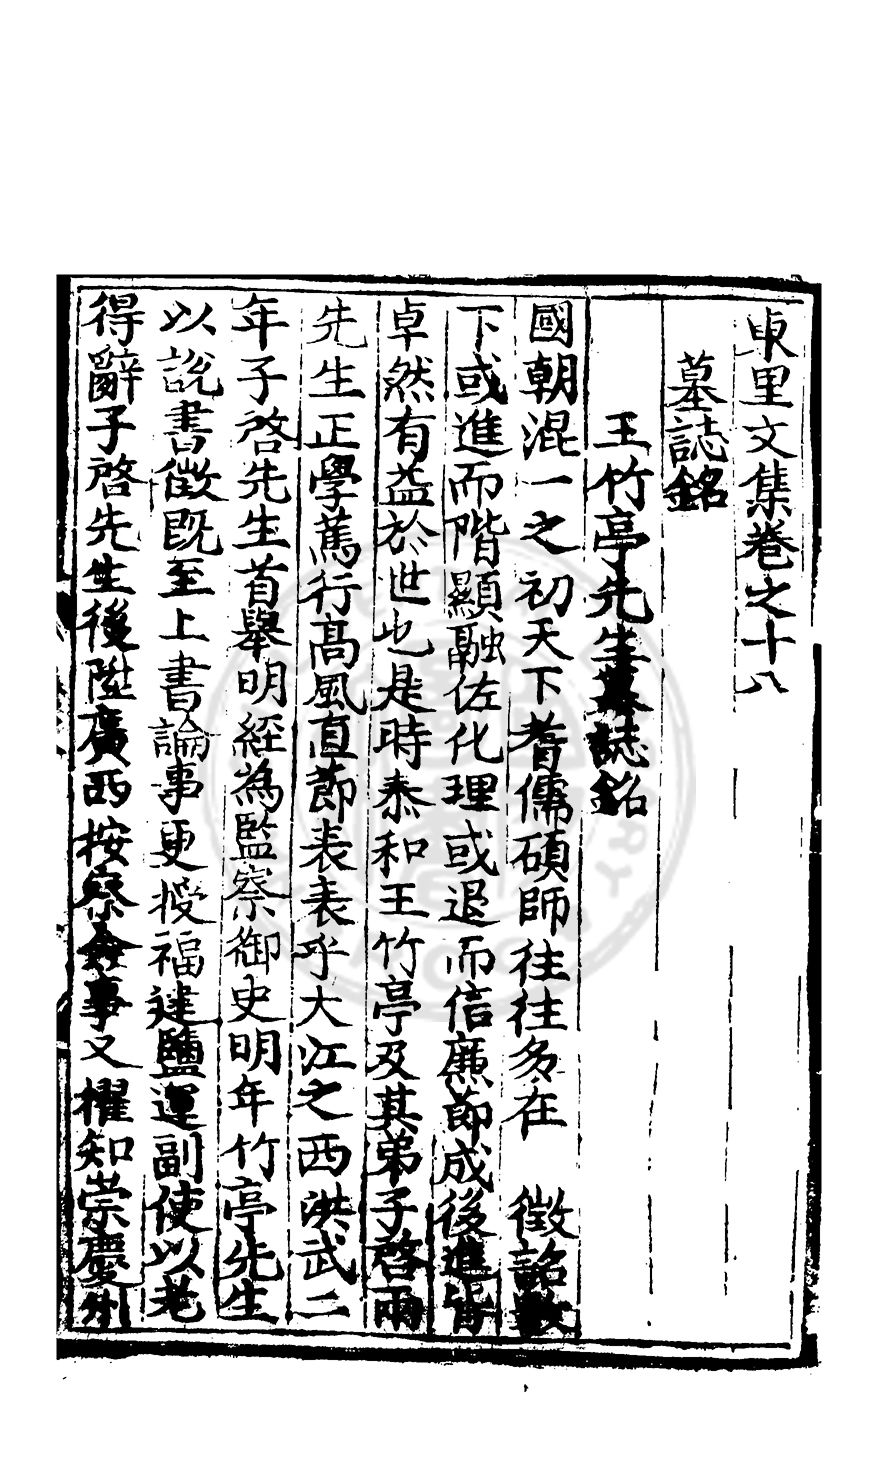 東里文集卷之十八
墓誌銘
王竹亭先生墓誌銘
國朝混一之初天下耆儒碩師往往多在　徵詔數
下或進而階顯融佐化理或退而信廉節成後進皆
卓然有益於世也是時泰和王竹亭及其弟子啓兩
先生正學篤行高風直節表表乎大江之西洪武二
年子啓先生首舉明經為監察御史明年竹亭先生
以說書徵既至上書論事更授福建鹽運副使以老
得辭子啓先生後陞廣西按察僉事又擢知崇慶州